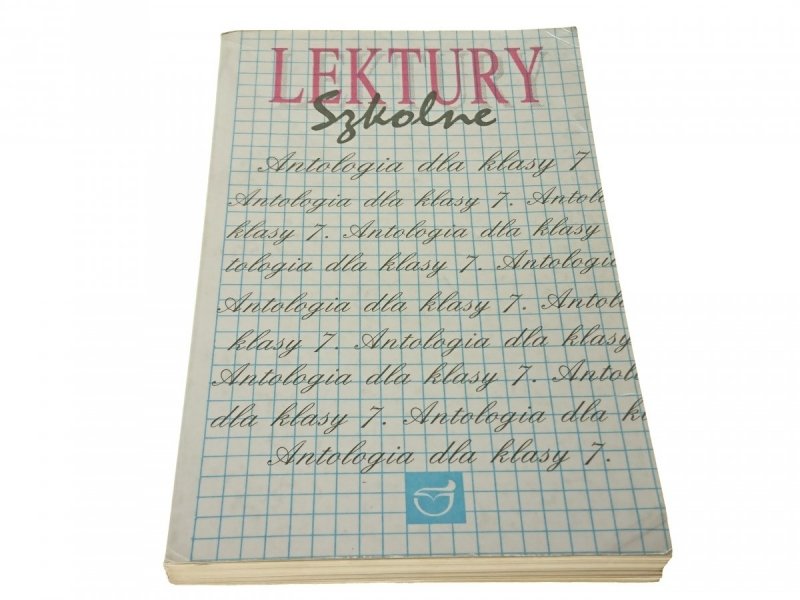 LEKTURY
Szkolne
Antologia dla klasy 7
Antologia dla klasy 7. Antolo
klasy 7. Antologia dla klasy
tologia dla klasy 7. Antologia
Antologia dla klasy 7. Antol
klasy 7. Antologia dla klasy
Antologia dla klasy 7. Antol
dla klasy 7. Antologia dla k
Antologia dla klasy 7.